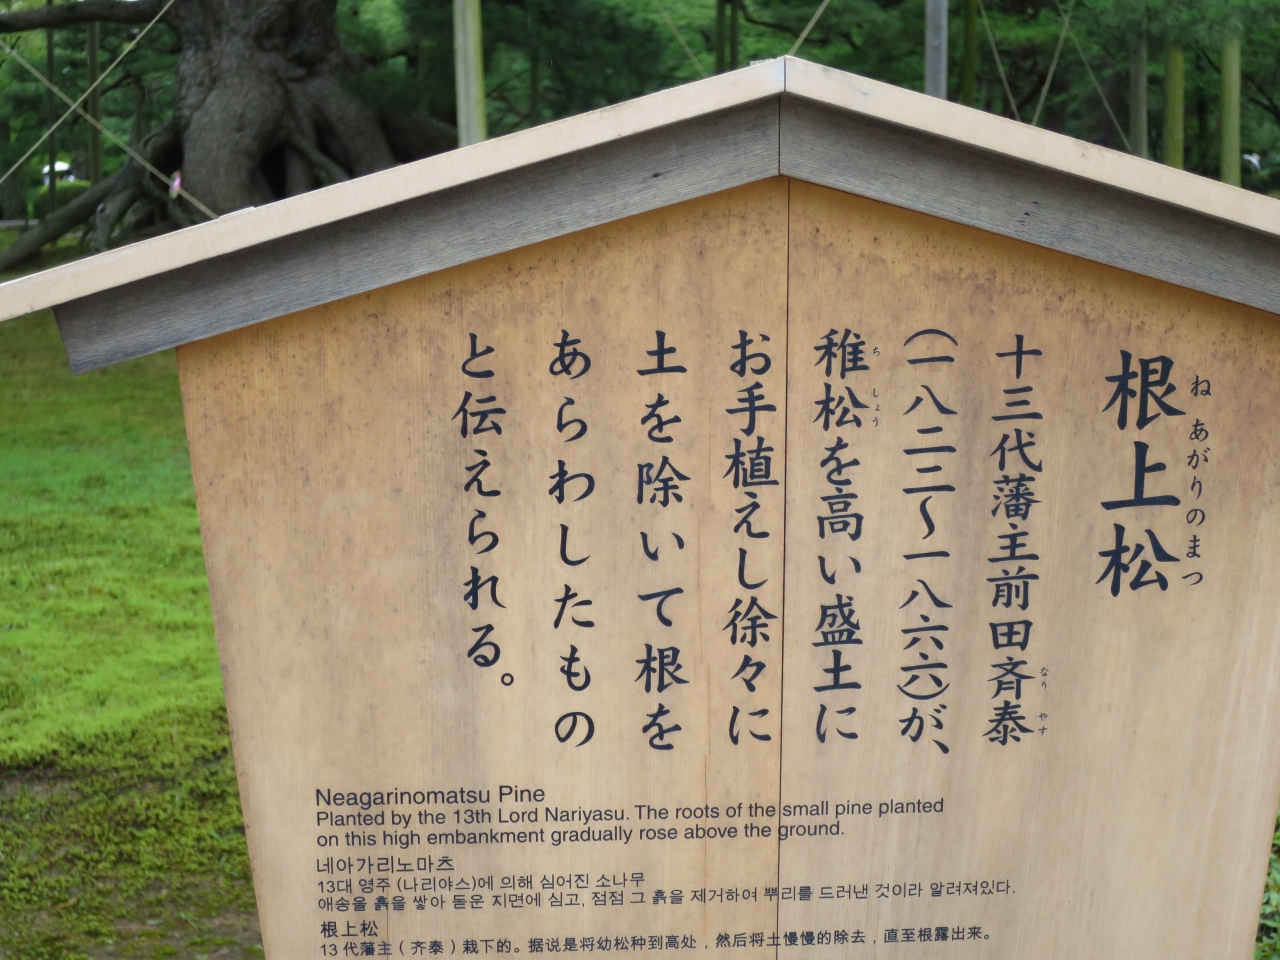 根上松
ねあがりのまつ
十三代藩主前田斉泰
なりやす
(一八二二〜一八六六)が、
稚松を高い盛土に
ちしょう
お手植えし徐々に
土を除いて根を
あらわしたもの
と伝えられる。
Neagarinomatsu Pine
Planted by the 13th Lord Nariyasu. The roots of the small pine planted
on this high embankment gradually rose above the ground.
네아가리노마츠
13대 영주 (나리야스)에 의해 심어진 소나무
애송을 흙을 쌓아 돋운 지면에 심고, 점점 그 흙을 제거하여 뿌리를 드러낸 것이라 알려져있다.
根上松
13 代藩主（齐泰）栽下的。据说是将幼松种到高处，然后将土慢慢的除去，直至根露出来。